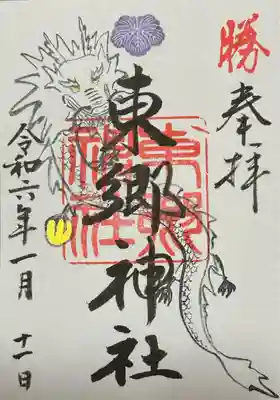 勝
奉拝
東郷神社
東郷
神社
令和六年一月
十一日